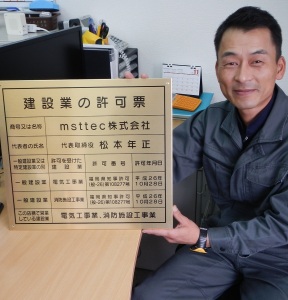 建設業の許可票
商号又は名称 msttec株式会社
代表者の氏名 代表取締役 松本年正
一般建設業又は特定建設業の別 許可を受けた建設業 許可番号 許可年月日
一般建設業 電気工事業 福岡県知事許可 平成26年
(般-26)第108277号 10月28日
一般建設業 消防施設工事業 福岡県知事許可 平成26年
(般-26)第108277号 10月28日
この店舗で営業している建設業 電気工事業、消防施設工事業